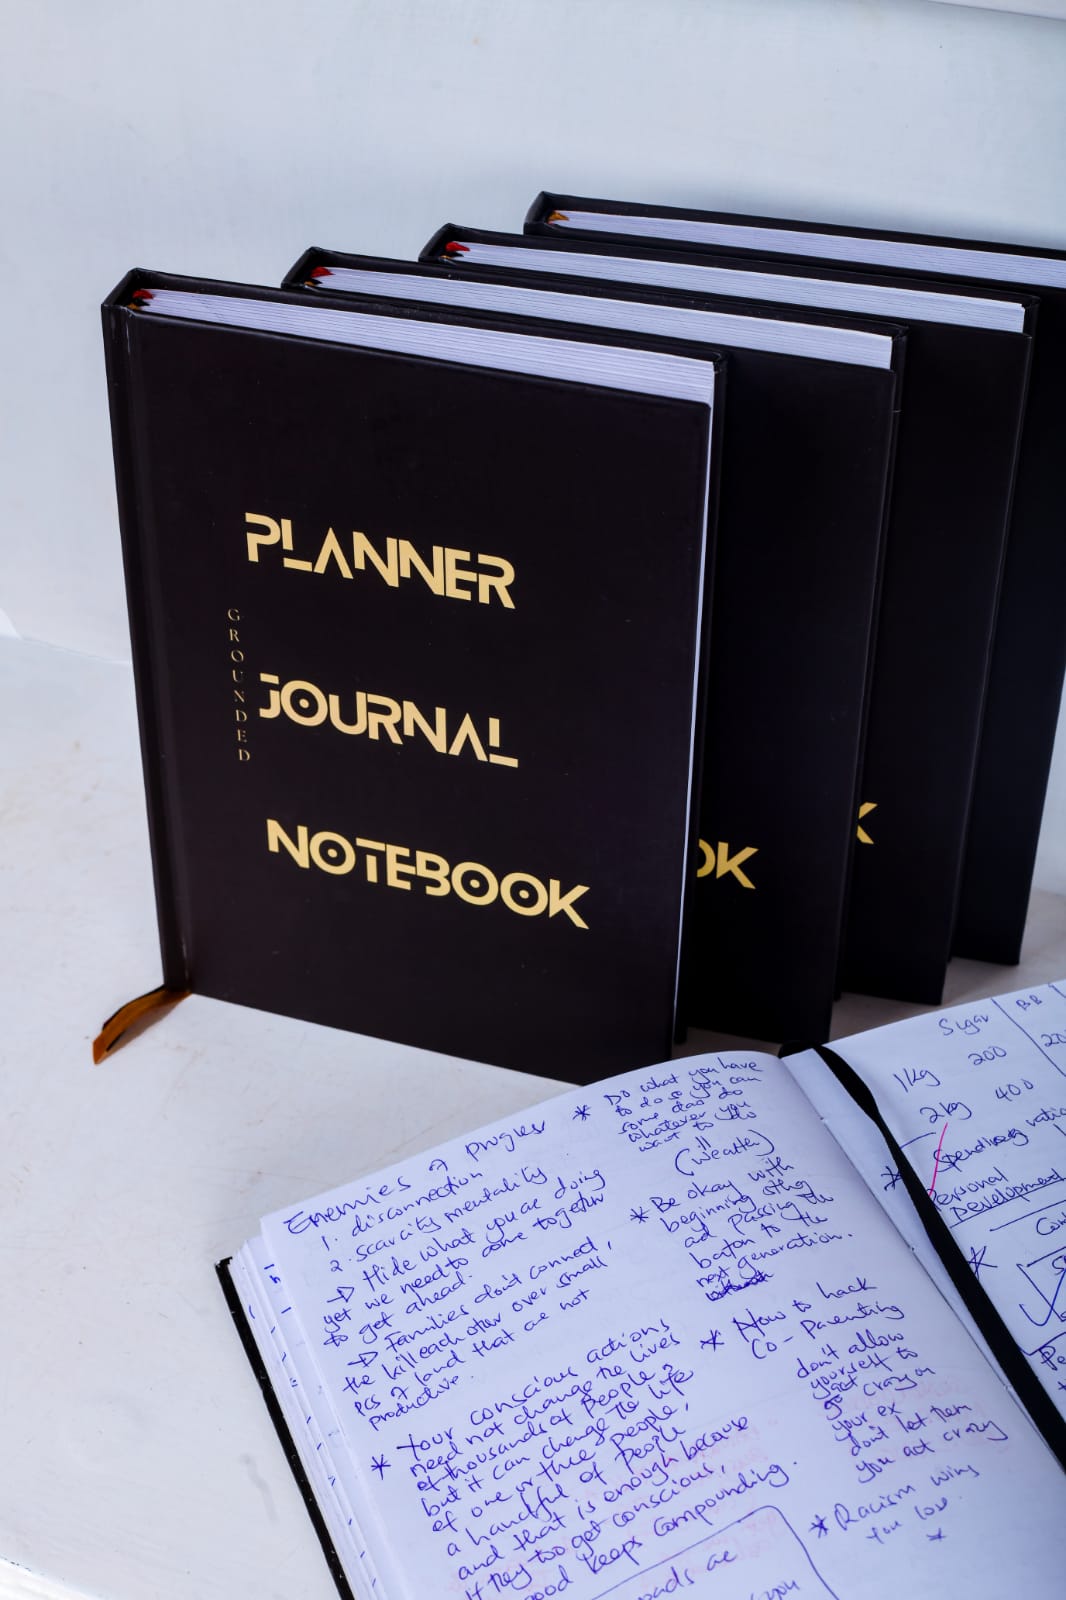 PLANNER
GROUNDED
JOURNAL
NOTEBOOK
OK
K
Enemies of progress
1. disconnection
2. scarcity mentality
→ Hide what you are doing
yet we need to come together
to get ahead.
→ Families don't connect,
the kill each other over small
pcs of land that are not
productive.
* Your conscious actions
need not change the lives
of thousands of People,
but it can change the life
of one or three people,
a handful of People
and that is enough because
if they too get conscious,
good keeps compounding.
ads are
you
* Do what you have
to do so you can
some day do
whatever you
want to do
(Wealth)
* Be okay with
beginning
and Passing the
baton to the
next generation.
* How to hack
Co-Parenting
don't allow
yourself to
go crazy on
your ex
don't let them
you act crazy
* Racism wins
you lose.
*
Sugar BB
1kg 200 20
2kg 400
* Spending
Personal
Development
*